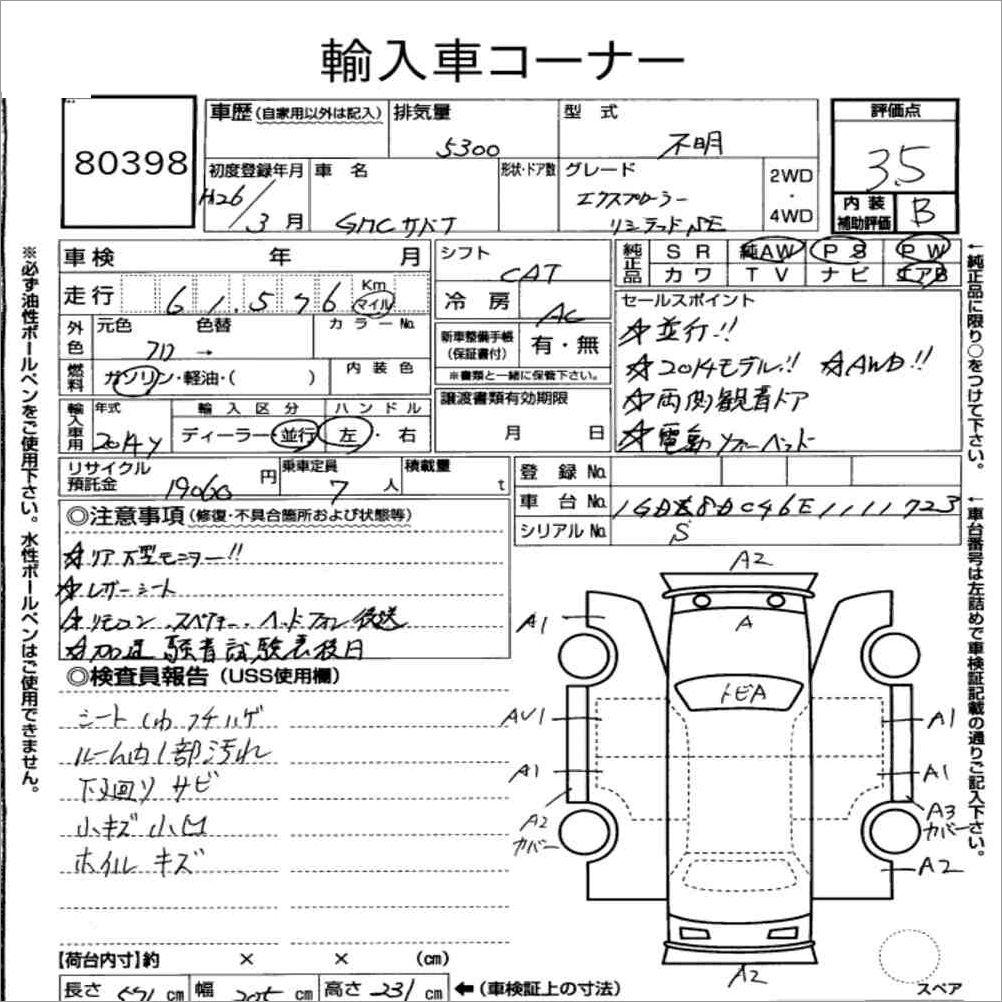 輸入車コーナー
80398
車歴 (自家用以外は記入)
排気量 5300
型式 不明
評価点 3.5
初度登録年月 H26/3月
車名 GMC サバナ
形状・ドア数
グレード エクスプローラー
リミテッドSE
2WD
・
4WD
内装補助評価 B
車検 年 月
シフト CAT
純正品 SR 純AW PS PW
カワ TV ナビ エアB
走行 61,576 Km マイル
冷房 AC
セールスポイント
☆並行!!
☆2014モデル!! ☆AWD!!
☆両側観音ドア
☆電動ソファーベット
外色 元色 色替 カラーNo.
→
新車整備手帳(保証書付) 有・無
※書類と一緒に保管下さい。
燃料 ガソリン・軽油・( )
内装色
輸入車用 年式 2014y
輸入区分 ハンドル
ディーラー・並行 左・右
譲渡書類有効期限
月 日
リサイクル預託金 19060円
乗車定員 7人
積載量 t
登録No.
車台No.
シリアルNo.
◎注意事項 (修復・不具合箇所および状態等)
☆リア大型モニター!!
☆レザーシート
☆リモコン、スペアキー、ヘッドフォン後送
☆加速騒音試験表後日
◎検査員報告 (USS使用欄)
シートしわフチハゲ
ルーム内1部汚れ
下廻りサビ
小キズ小凹
ホイルキズ
A2
A1
A
トビA
AV1
A1
A1
A1
A2
カバー
A3
カバー
A2
A2
スペア
【荷台内寸】約 × × (cm)
長さ 571cm 幅 205cm 高さ 231cm
←(車検証上の寸法)
※必ず油性ボールペンをご使用下さい。水性ボールペンはご使用できません。
←純正品に限り○をつけて下さい。
←車台番号は左詰めで車検証記載の通りご記入下さい。